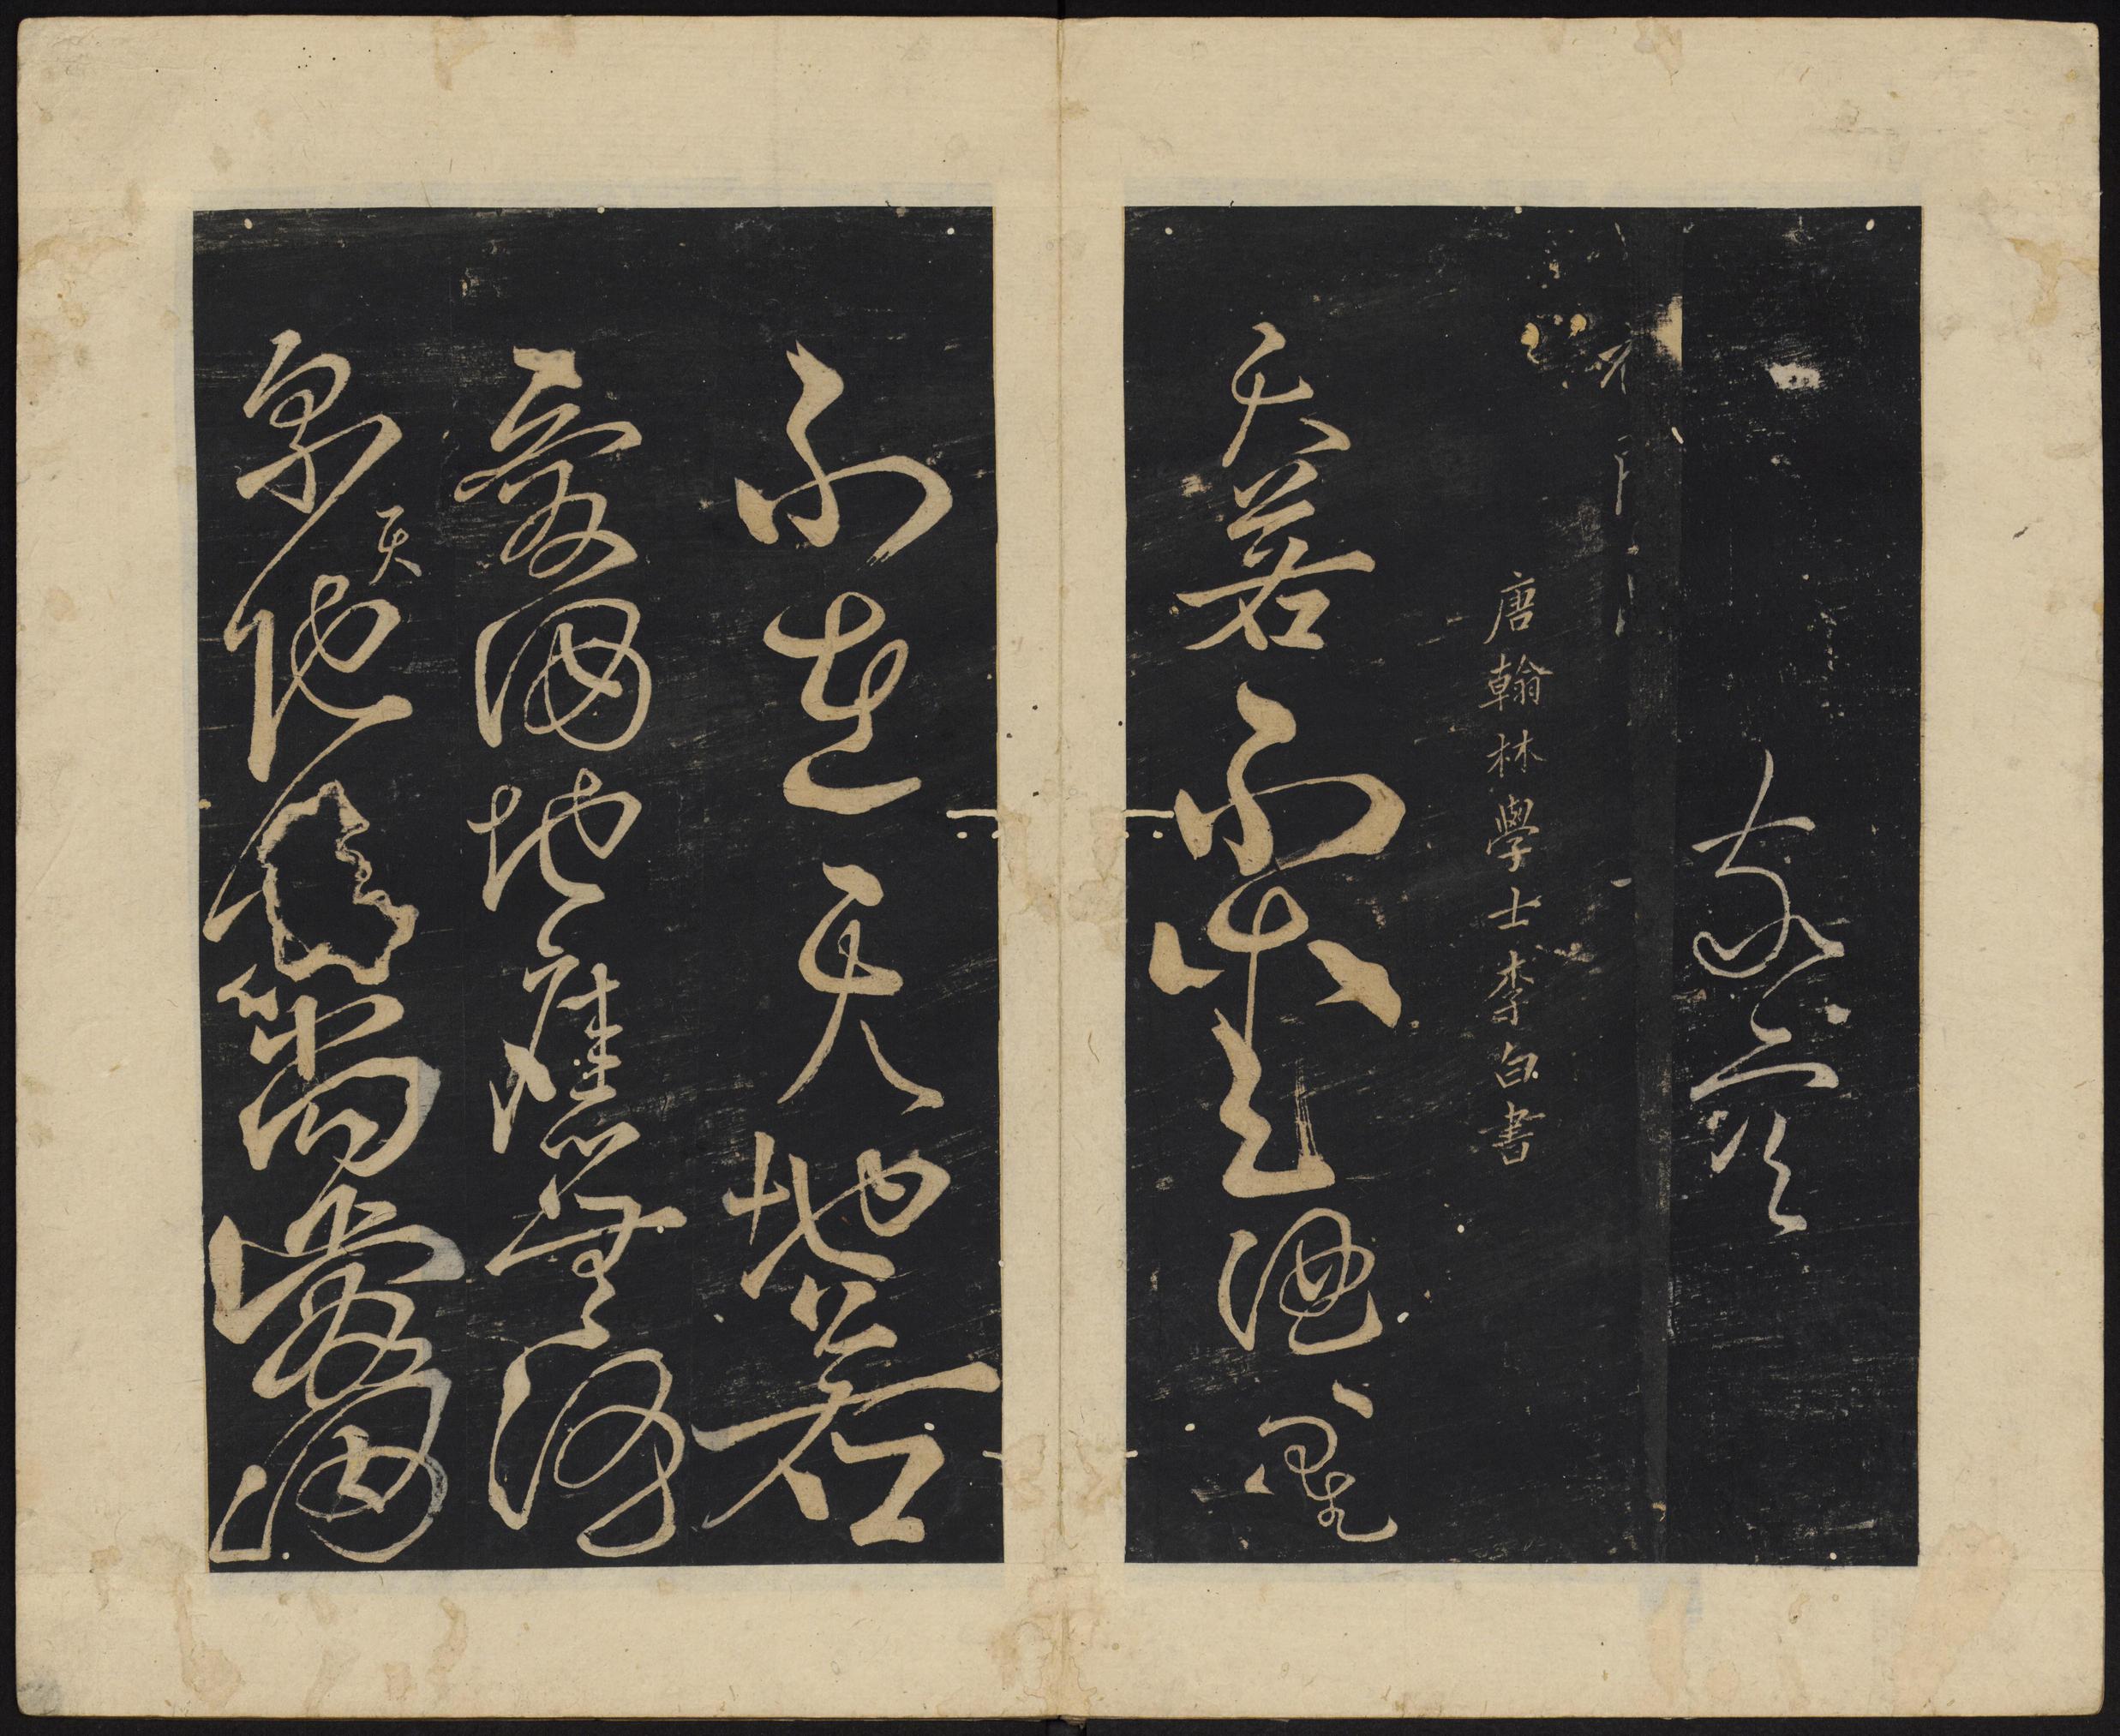 敬空
唐翰林學士李白書
天若不愛酒星
不在天地若
不愛酒地應無酒
泉天地尚愛酒